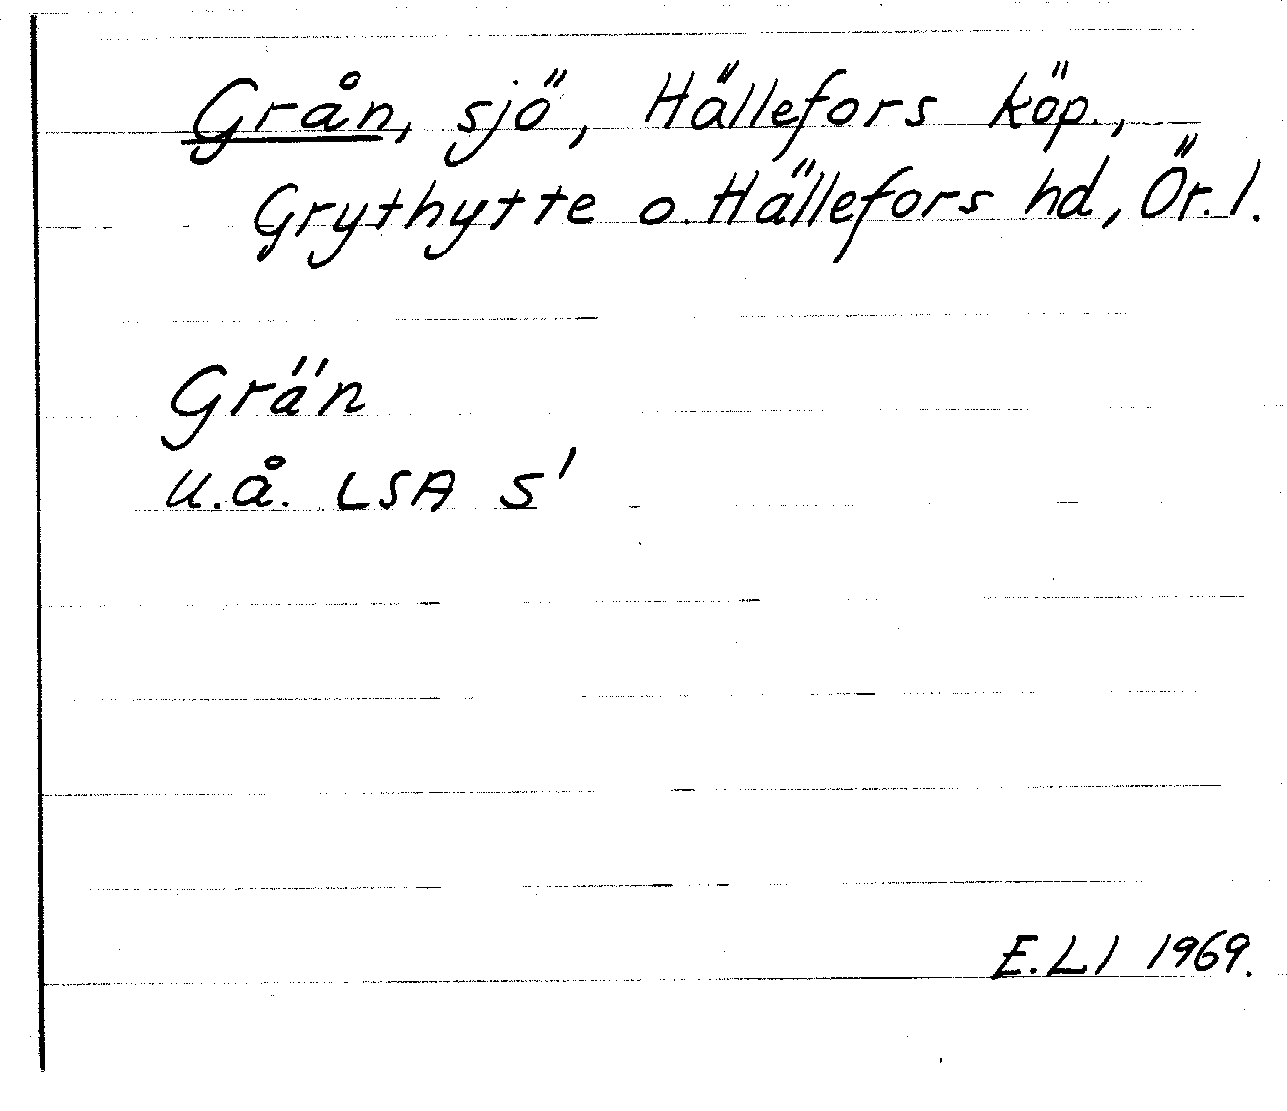 Grån, sjö, Hällefors köp.,
Grythytte o. Hällefors hd, Ör. l.
Grän
u.å. LSA S'
E.Ll 1969.